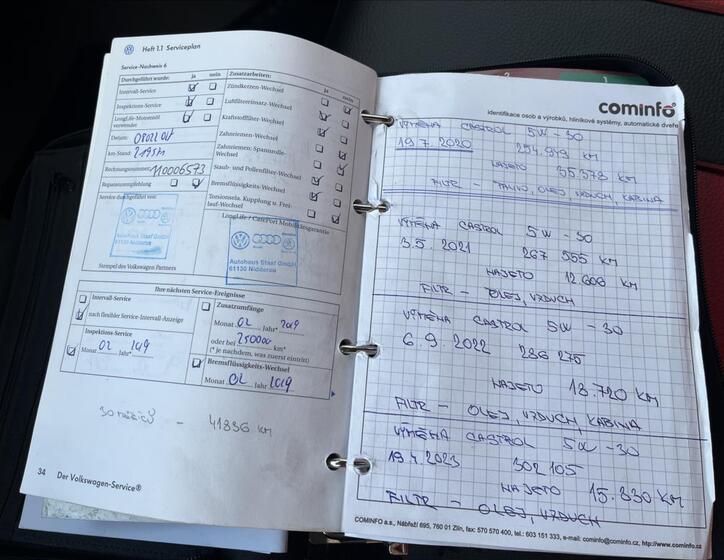 Heft 1.1 Serviceplan
Service-Nachweis 6
Durchgeführt wurde: ja nein
Intervall-Service
Inspektions-Service
LongLife-Motorenöl verwendet
Datum:
km-Stand:
Rechnungsnummer: 110006573
Reparaturempfehlung
Service durchgeführt von:
Autohaus Staaf GmbH
61130 Nidderau
Stempel des Volkswagen Partners
Zusatzarbeiten: ja nein
Zündkerzen-Wechsel
Luftfiltereinsatz-Wechsel
Kraftstoffilter-Wechsel
Zahnriemen-Wechsel
Zahnriemen-Spannrolle-Wechsel
Staub- und Pollenfilter-Wechsel
Bremsflüssigkeits-Wechsel
Torsionsela. Kupplung u. Frei-
lauf-Wechsel
LongLife / CarePort Mobilitätsgarantie
Audi
Autohaus Staaf GmbH
61130 Nidderau
Ihre nächsten Service-Ereignisse
Intervall-Service
nach flexibler Service-Intervall-Anzeige
Inspektions-Service
Monat 02 Jahr* 2019
Zusatzumfänge
Monat 02 Jahr* 2019
oder bei 250000 km*
(* je nachdem, was zuerst eintritt)
Bremsflüssigkeits-Wechsel
Monat 02 Jahr 2019
41896 km
34 Der Volkswagen-Service®
cominfo
identifikace osob a výrobků, hliníkové systémy, automatické dveře
VÝMĚNA CASTROL 5W-30
19.7.2020 254.949 km
NAJETO 35.378 km
FILTR - PALIVO, OLEJ, VZDUCH, KABINA
VÝMĚNA CASTROL 5W-30
3.5.2021 267 555 km
NAJETO 12.606 km
FILTR - OLEJ, VZDUCH
VÝMĚNA CASTROL 5W-30
6.9.2022 286 275
NAJETO 18.720 KM
FILTR - OLEJ, VZDUCH, KABINA
VÝMĚNA CASTROL 5W-30
19.4.2023 302 105
NAJETO 15.830 KM
FILTR - OLEJ, VZDUCH
COMINFO a.s., Nábřeží 695, 760 01 Zlín, fax: 570 570 400, tel.: 603 151 333, e-mail: cominfo@cominfo.cz, http://www.cominfo.cz